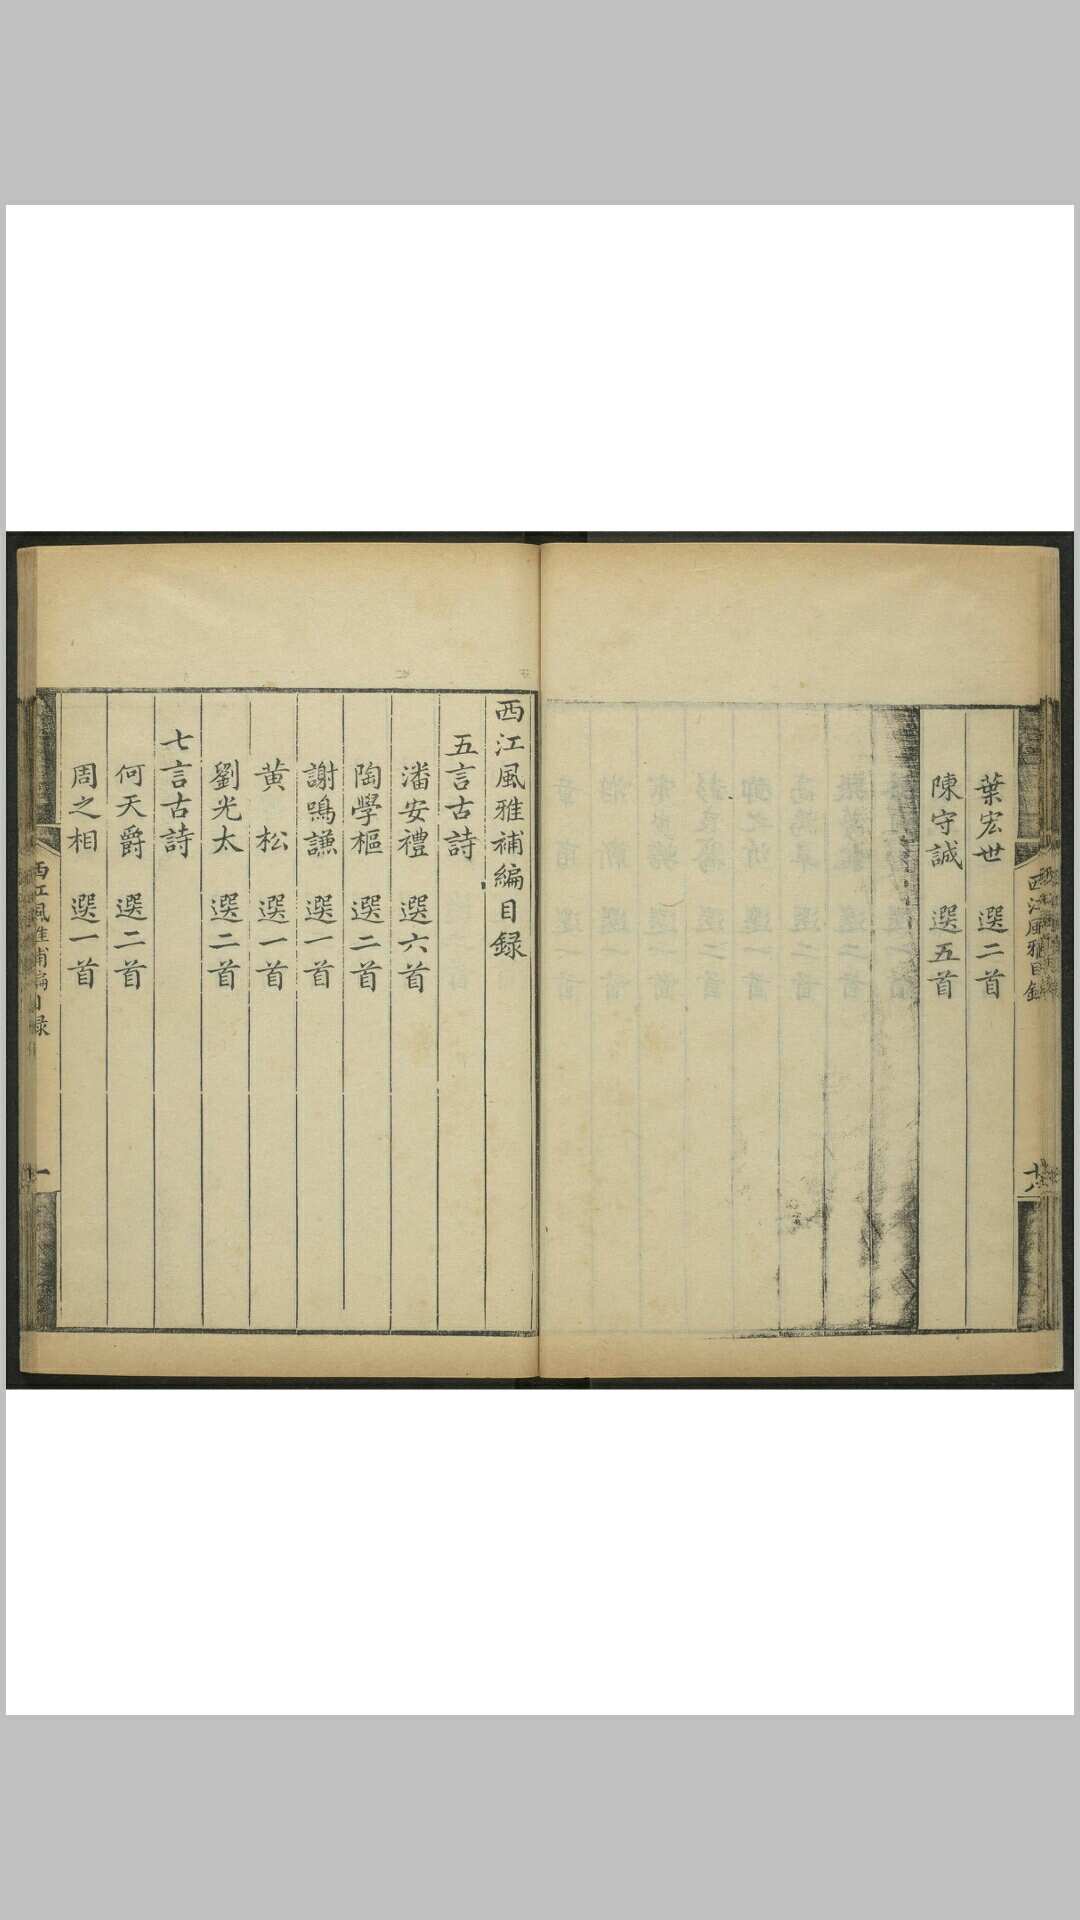 西江風雅目錄
十六
葉宏世 選二首
陳守誠 選五首
西江風雅補編目錄
五言古詩
潘安禮 選六首
陶學樞 選二首
謝鳴謙 選一首
黄松 選一首
劉光太 選二首
七言古詩
何天爵 選二首
周之相 選一首
西江風雅補編目録
一